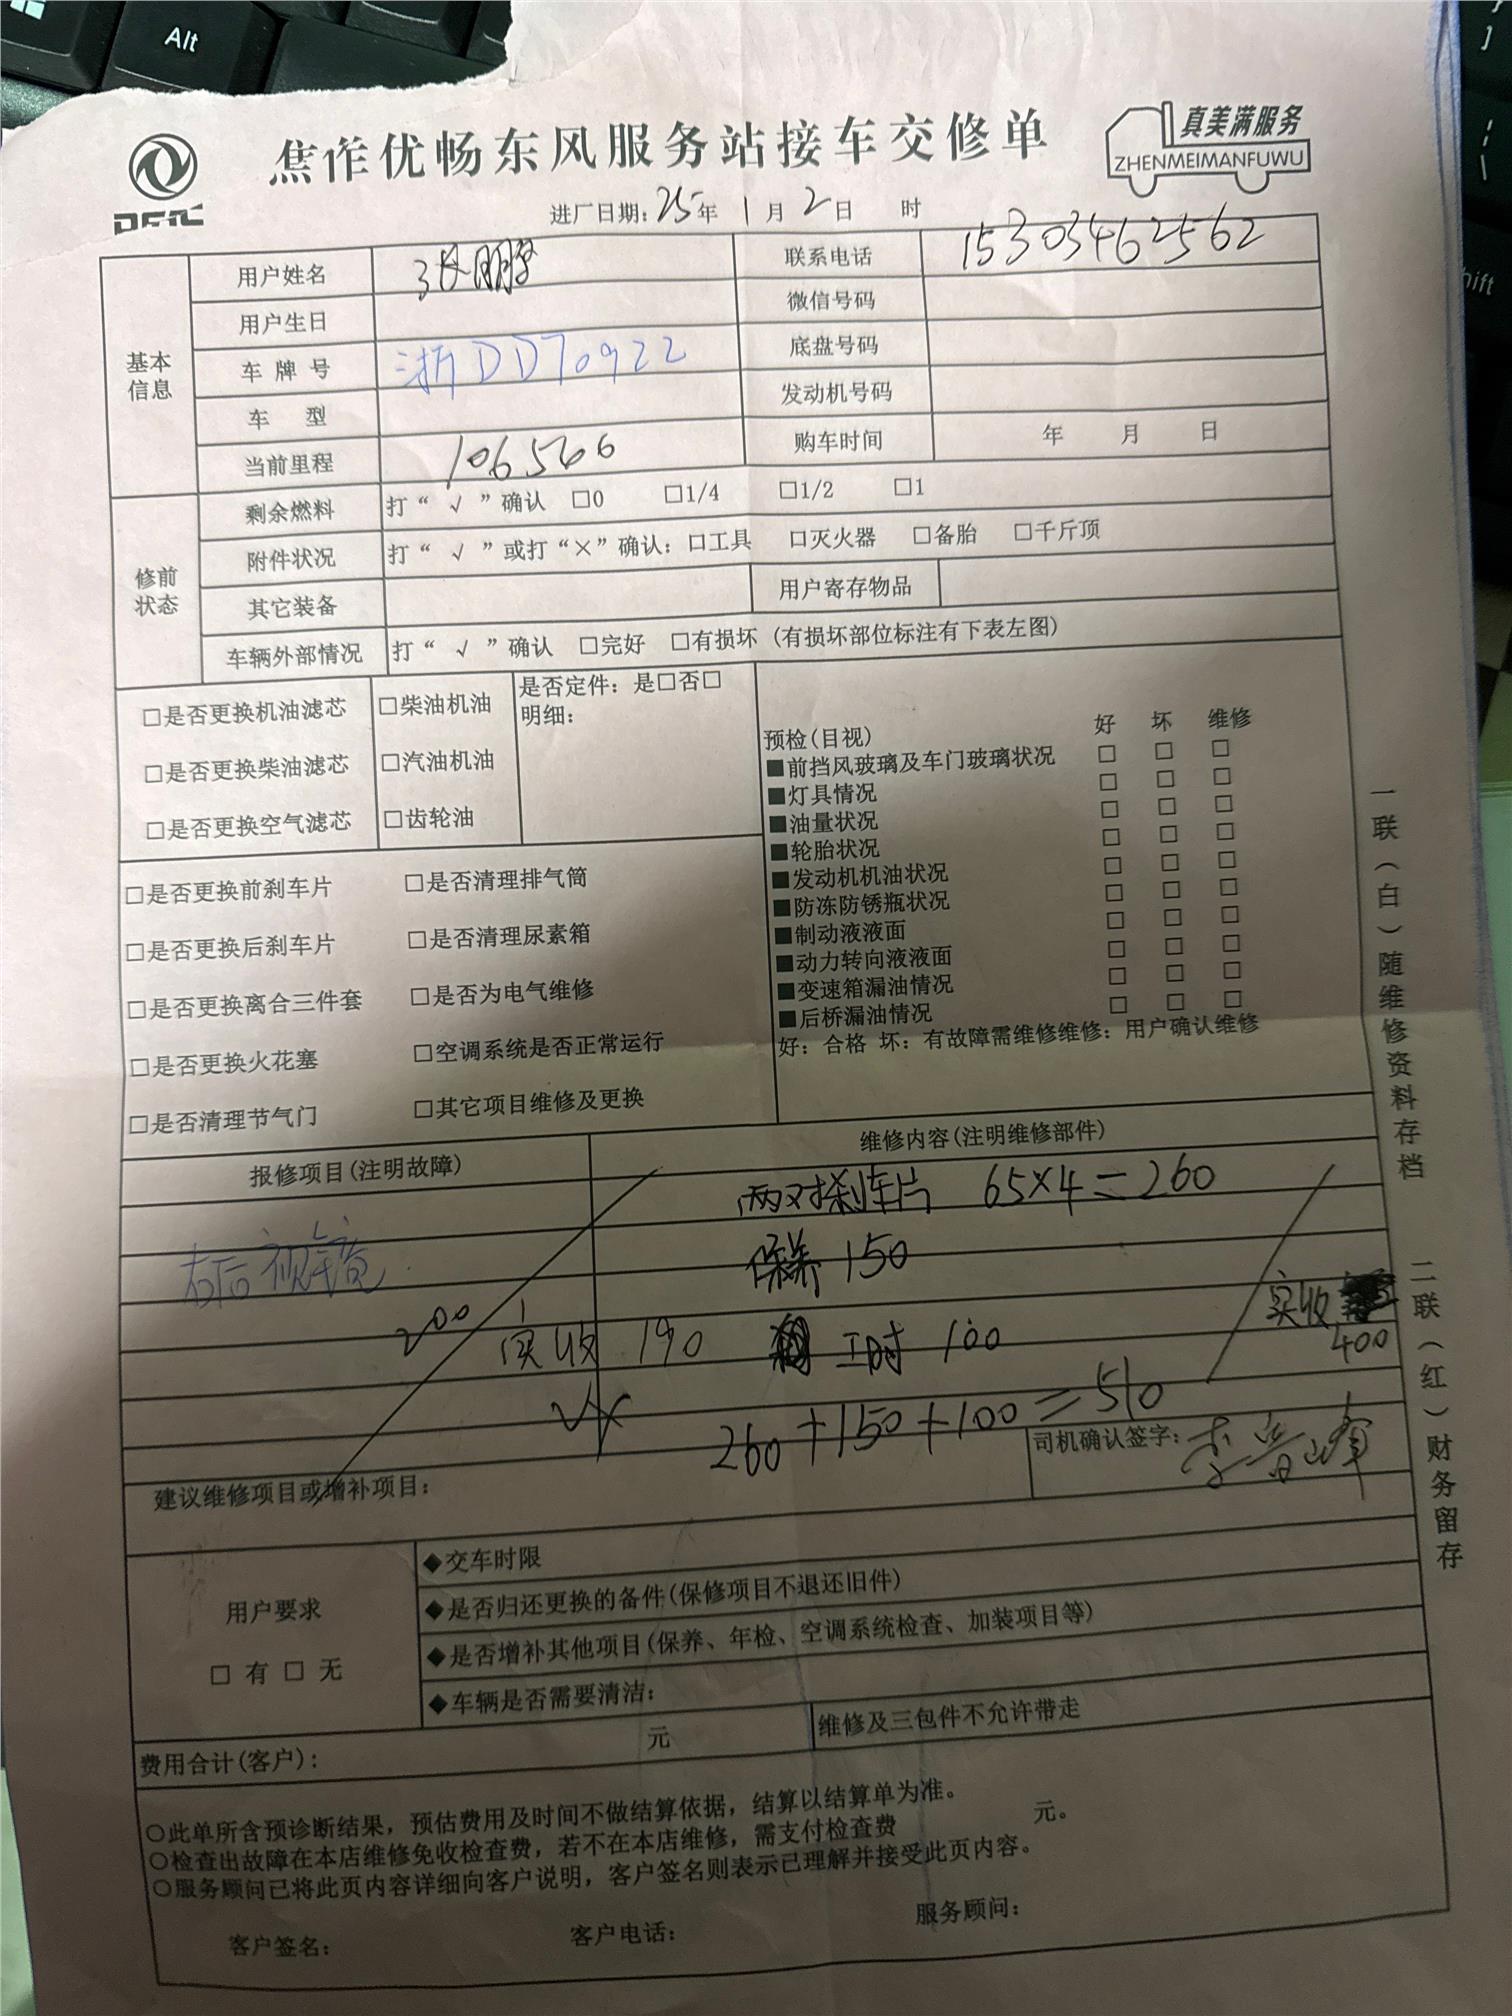 Alt
焦作优畅东风服务站接车交修单
真美满服务
ZHENMEIMANFUWU
进厂日期：25年 1月 2日 时
基本信息
用户姓名 张鹏 联系电话 15303462562
用户生日 微信号码
车牌号 浙DD70922 底盘号码
车 型 发动机号码
当前里程 106566 购车时间 年 月 日
修前状态
剩余燃料 打“√”确认 □0 □1/4 □1/2 □1
附件状况 打“√”或打“×”确认：□工具 □灭火器 □备胎 □千斤顶
其它装备 用户寄存物品
车辆外部情况 打“√”确认 □完好 □有损坏（有损坏部位标注有下表左图）
□是否更换机油滤芯 □柴油机油 是否定件：是□否□
明细：
□是否更换柴油滤芯 □汽油机油
□是否更换空气滤芯 □齿轮油
预检(目视) 好 坏 维修
■前挡风玻璃及车门玻璃状况 □ □ □
■灯具情况 □ □ □
■油量状况 □ □ □
■轮胎状况 □ □ □
■发动机机油状况 □ □ □
■防冻防锈瓶状况 □ □ □
■制动液液面 □ □ □
■动力转向液液面 □ □ □
■变速箱漏油情况 □ □ □
■后桥漏油情况 □ □ □
好：合格 坏：有故障需维修维修：用户确认维修
□是否更换前刹车片 □是否清理排气筒
□是否更换后刹车片 □是否清理尿素箱
□是否更换离合三件套 □是否为电气维修
□是否更换火花塞 □空调系统是否正常运行
□是否清理节气门 □其它项目维修及更换
报修项目(注明故障) 维修内容(注明维修部件)
两对刹车片 65×4=260
右后视镜 保养 150
200 实收 190 工时 100
实收 400
260+150+100=510
司机确认签字：李晋峰
建议维修项目或增补项目：
用户要求
□ 有 □ 无
◆交车时限
◆是否归还更换的备件(保修项目不退还旧件)
◆是否增补其他项目(保养、年检、空调系统检查、加装项目等)
◆车辆是否需要清洁：
费用合计(客户)： 元 维修及三包件不允许带走
○此单所含预诊断结果，预估费用及时间不做结算依据，结算以结算单为准。
○检查出故障在本店维修免收检查费，若不在本店维修，需支付检查费 元。
○服务顾问已将此页内容详细向客户说明，客户签名则表示已理解并接受此页内容。
客户签名： 客户电话： 服务顾问：
一联（白）随维修资料存档 二联（红）财务留存